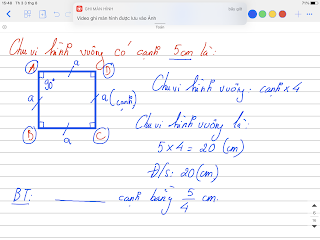 15:46 Th 3 3 thg 8
GHI MÀN HÌNH
Video ghi màn hình được lưu vào Ảnh
Chu vi hình vuông có cạnh 5cm là:
A a D
90°
a a (cạnh)
B a C
Chu vi hình vuông: cạnh x 4
Chu vi hình vuông là:
5 x 4 = 20 (cm)
Đ/s: 20 (cm)
BT: cạnh bằng 5/4 cm.